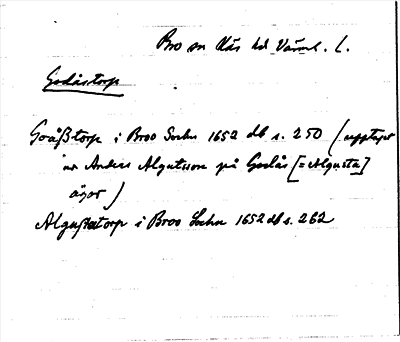 Bro sn Näs hd Värml. L.
Godåstorp
Goåßtorp i Broo Sochn 1652 db s. 250 (upptaget
av Anders Algutsson på Godås [= Algusta]
ägor)
Algußtatorp i Broo Sochn 1652 db s. 262